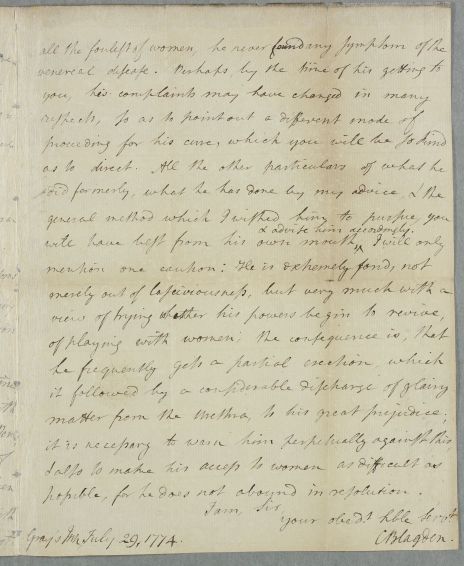 all the foulest of women, he never found any symptom of the
venereal disease. Perhaps, by the time of his getting to
you, his complaints may have changed in many
respects, so as to point out a different mode of
proceeding for his cure, which you will be so kind
as to direct. All the other particulars of what he
did formerly, what he has done by my advice, & the
general method which I wished him to pursue, you
& advise him accordingly.
will have best from his own mouth ^ I will only
mention one caution: He is extremely fond, not
merely out of lasciviousness, but very much with a
view of trying whether his powers begin to revive,
of playing with women; the consequence is, that
he frequently gets a partial erection, which
is followed by a considerable discharge of glairy
matter from the Urethra, to his great prejudice.
it is necessary to warn him perpetually against this,
& also to make his access to women as difficult as
possible, for he does not abound in resolution.
I am, Sir,
your obedt. hble Servt.
Gray's Inn July 29, 1774.
CBlagden.